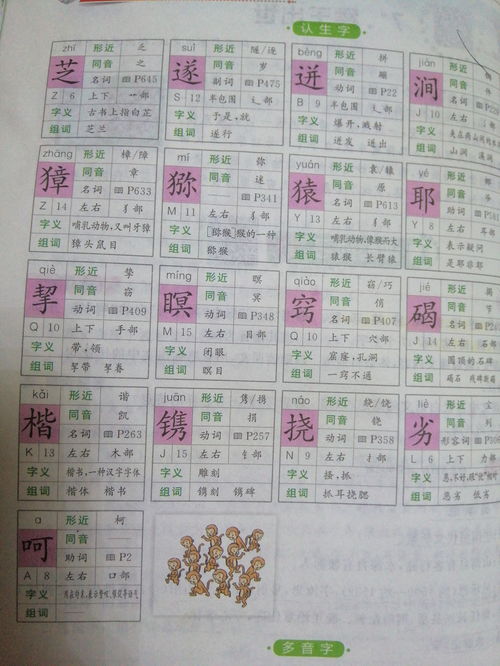 认生字
zhī 芝 形近 乏
同音 之
名词 P645
Z 6 上下 艹部
字义 古书上指白芷
组词 芝兰
suì 遂 形近 隧/逐
同音 岁
副词 P475
S 12 半包围 辶部
字义 于是,就
组词 遂行
bèng 迸 形近 拼
同音 蹦
动词 P22
B 9 半包围 辶部
字义 爆开,溅射
组词 迸发 迸出
jiàn 涧
J 10 左右
组词 山涧 溪涧
zhāng 獐 形近 樟/障
同音 章
名词 P633
Z 14 左右 犭部
字义 哺乳动物,又叫牙獐
组词 獐头鼠目
mí 猕 形近 弥
同音 迷
P341
M 11 左右 犭部
字义 [猕猴]猴的一种
组词 猕猴
yuán 猿 形近 袁/辕
同音 原
名词 P613
Y 13 左右 犭部
字义 哺乳动物,像猴而大
组词 猿猴 长臂猿
yé 耶 形近
同音 爷
助词
Y 8 左右 耳部
字义 表示疑问
组词 是耶非耶
qiè 挈 形近
同音 窃
动词 P409
Q 10 上下 手部
字义 带,领
组词 挈带 挈眷
míng 瞑 形近 暝
同音 冥
动词 P348
M 15 左右 目部
字义 闭眼
组词 瞑目
qiào 窍 形近 窃/巧
同音 俏
名词 P407
Q 10 上下 穴部
字义 窟窿,孔洞
组词 一窍不通
jié 碣 形近
同音 节
名词
J 14 左右 石部
字义 圆顶的石碑
组词 碣石 残碑断碣
kǎi 楷 形近 谐
同音 凯
名词 P263
K 13 左右 木部
字义 楷书,一种汉字字体
组词 楷体 楷书
juān 镌 形近 隽/携
同音 捐
动词 P257
J 15 左右 钅部
字义 雕刻
组词 镌刻 镌碑
náo 挠 形近 绕/饶
同音 铙
动词 P358
N 9 左右 扌部
字义 搔,抓
组词 抓耳挠腮
liè 劣 形近
同音 列
形容词
L 6 上下 力部
字义
组词 恶劣 低劣
a 呵 形近 柯
同音
助词 P2
A 8 左右 口部
字义
组词
多音字